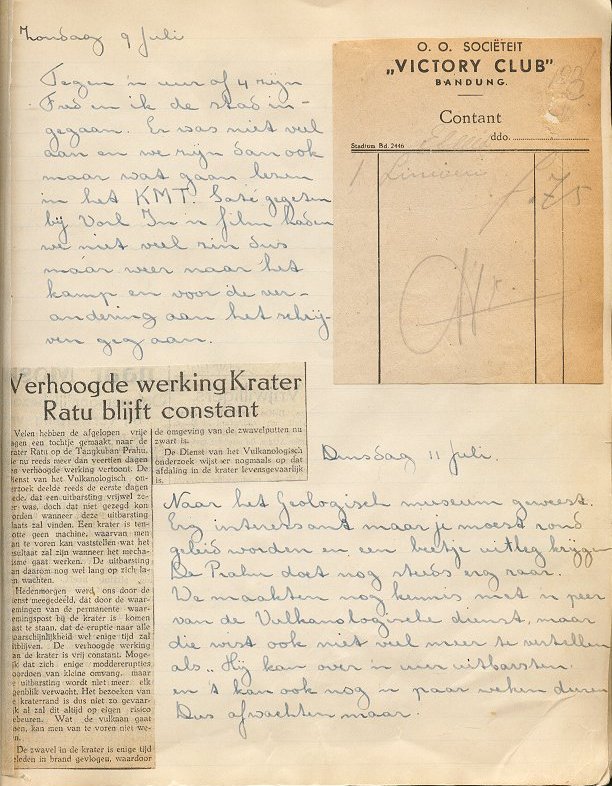 Zondag 9 juli
Tegen 'n uur of 4 zijn
Fred en ik de stad in-
gegaan. Er was niet veel
aan en we zijn dan ook
maar wat gaan lezen
in het KMT. Saté gegeten
bij Vorl. In 'n film hadden
we niet veel zin dus
maar weer naar het
kamp en voor de ver-
andering aan het schrij-
ven gegaan.
O. O. SOCIËTEIT
„VICTORY CLUB"
BANDUNG.
Contant
ddo.
Stadium Bd. 2446
1
f. 75
Verhoogde werking Krater
Ratu blijft constant
Velen hebben de afgelopen vrije
agen een tochtje gemaakt naar de
rater Ratu op de Tangkuban Prahu,
ie nu reeds meer dan veertien dagen
en verhoogde werking vertoont. De
ienst van het Vulkanologisch on-
erzoek deelde reeds de eerste dagen
ede, dat een uitbarsting vrijwel ze-
er was, doch dat niet gezegd kon
orden wanneer deze uitbarsting
laats zal vinden. Een krater is ten-
otte geen machine, waarvan men
an te voren kan vaststellen wat het
sultaat zal zijn wanneer het mecha-
isme gaat werken. De uitbarsting
an daarom nog wel lang op zich la-
en wachten.
Hedenmorgen werd ons door de
ienst meegedeeld, dat door de waar-
emingen van de permanente waar-
emingspost bij de krater is komen
ast te staan, dat de eruptie naar alle
aarschijnlijkheid wel enige tijd zal
itblijven. De verhoogde werking
an de krater is vrij constant. Moge-
jk dat zich enige moddererupties
oordoen van kleine omvang, maar
ne uitbarsting wordt niet meer elk
genblik verwacht. Het bezoeken van
e kraterrand is dus niet zo gevaar-
k al zal dit altijd op eigen risico
ebeuren. Wat de vulkaan gaat
oen, kan men van te voren niet we-
en.
De zwavel in de krater is enige tijd
eleden in brand gevlogen, waardoor
de omgeving van de zwavelputten nu
zwart is.
De Dienst van het Vulkanologisch
onderzoek wijst er nogmaals op dat
afdaling in de krater levensgevaarlijk
is.
Dinsdag 11 juli.
Naar het Geologisch museum geweest.
Erg interessant maar je moest rond
geleid worden en een beetje uitleg krijgen
De Prahu doet nog steeds erg raar.
We maakten nog kennis met 'n peer
van de Vulkanologische dienst, maar
die wist ook niet veel meer te vertellen
als. Hij kan over 'n uur uitbarsten
en 't kan ook nog 'n paar weken duren
Dus afwachten maar.